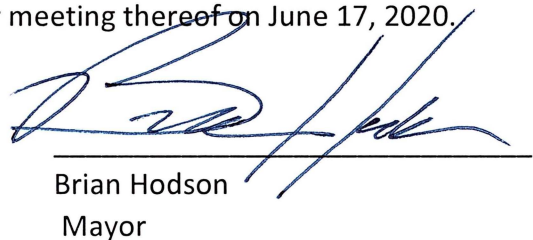 meeting thereof on June 17, 2020.
Brian Hodson
Mayor